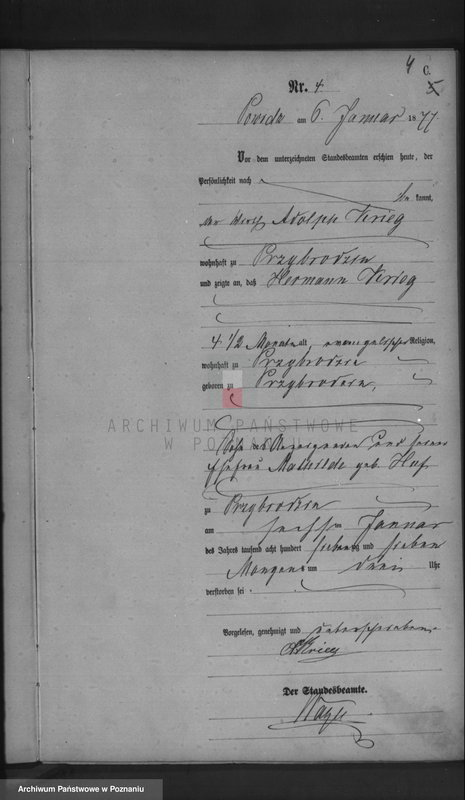 4 C.
5
Nr. 4
Powidz am 6. Januar 1877
Vor dem unterzeichneten Standesbeamten erschien heute, der
Persönlichkeit nach
be kannt,
der Adolph Krieg
wohnhaft zu Przybrodzin
und zeigte an, daß Hermann Krieg
4 1/2 Monate alt, evangelischer Religion,
wohnhaft zu Przybrodzin
geboren zu Przybrodzin,
ARCHIWUM PAŃSTWOWE
W POZNANIU
Sohn des Anzeigenden und seiner
Ehefrau Mathilde geb. Huf
zu Przybrodzin
am sechsten Januar
des Jahres tausend acht hundert siebenzig und sieben
Morgens um drei Uhr
verstorben sei.
Vorgelesen, genehmigt und unterschrieben
A Krieg
Der Standesbeamte.
Archiwum Państwowe w Poznaniu